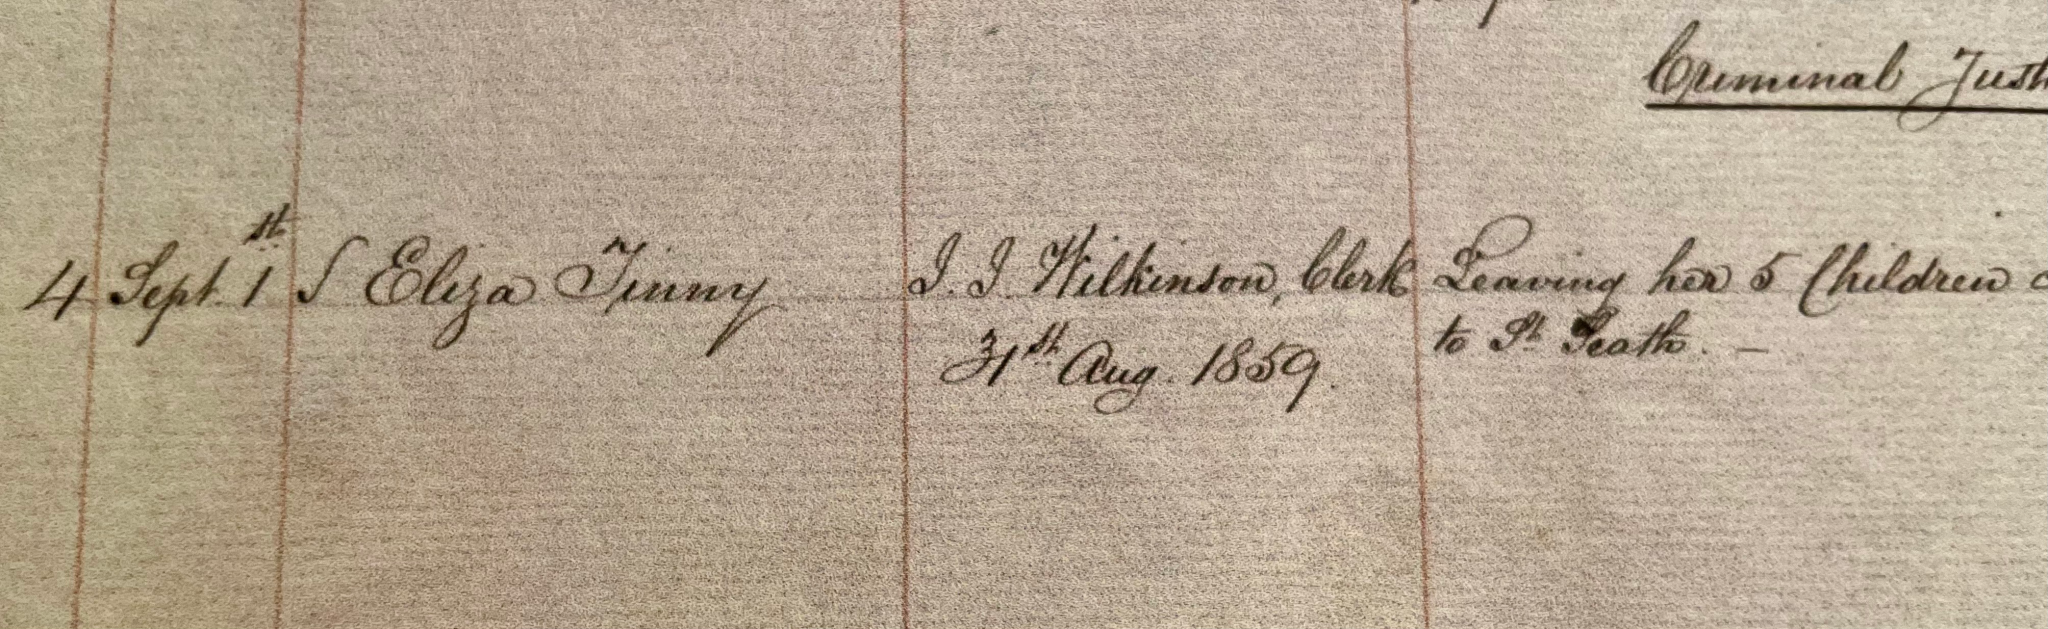 Criminal Just
4 Sept. 1st S Eliza Tinny J. J. Wilkinson, Clerk Leaving her 5 Children
31st Aug. 1859. to St. Teath. —